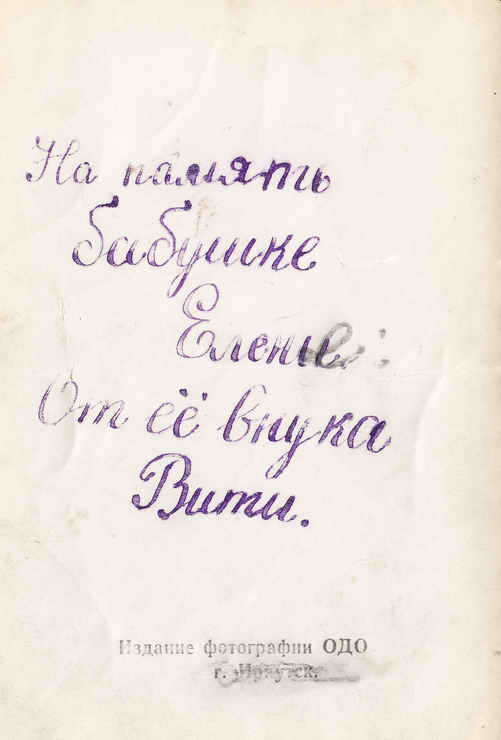 На память
бабушке
Елене:
От её внука
Вити.
Издание фотографии ОДО
г. Иркутск.